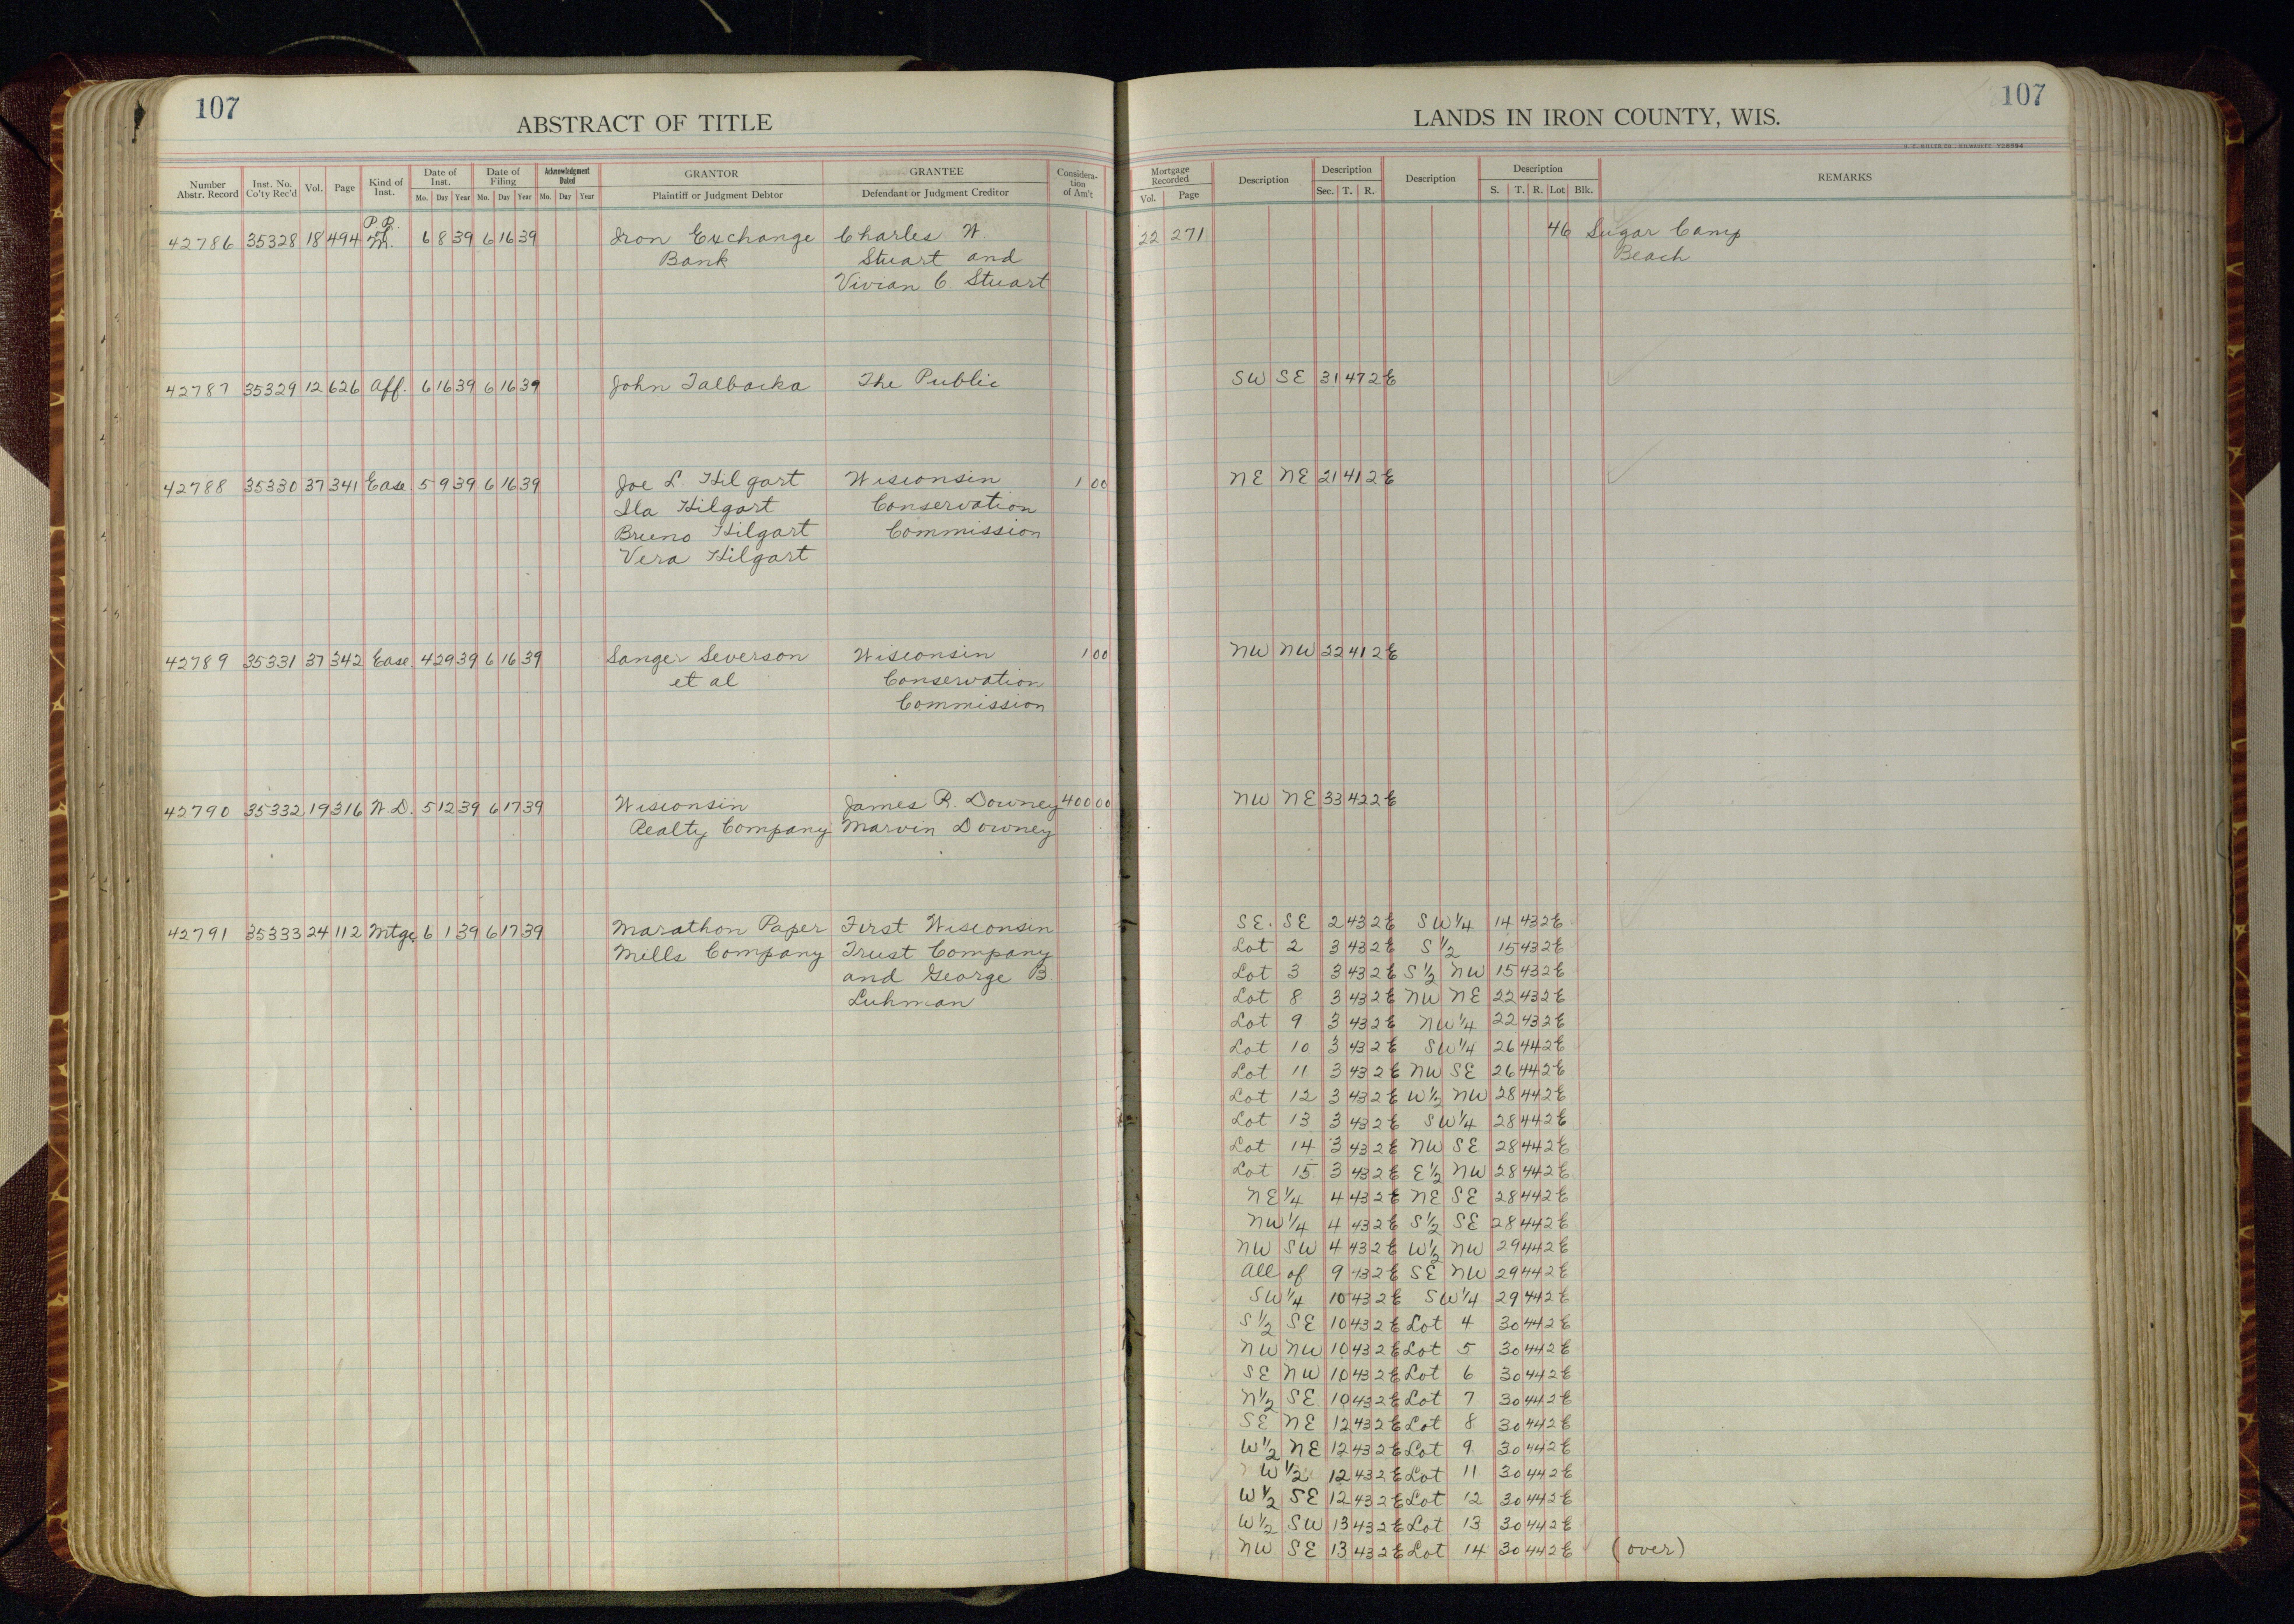 107
ABSTRACT OF TITLE
Number Abstr. Record | Inst. No. Co'ty Rec'd | Vol. | Page | Kind of Inst. | Date of Inst. Mo. Day Year | Date of Filing Mo. Day Year | Acknowledgment Dated Mo. Day Year | GRANTOR Plaintiff or Judgment Debtor | GRANTEE Defendant or Judgment Creditor | Consideration of Am't
P. R.
42786 35328 18 494 of M. 6 8 39 6 16 39 Iron Exchange Charles W
Bank Stuart and
Vivian C Stuart
42787 35329 12 626 Aff. 6 16 39 6 16 39 John Talbacka The Public
42788 35330 37 341 Ease. 5 9 39 6 16 39 Joe L. Hilgart Wisconsin 1 00
Ila Hilgart Conservation
Bruno Hilgart Commission
Vera Hilgart
42789 35331 37 342 Ease. 4 29 39 6 16 39 Sanger Severson Wisconsin 1 00
et al Conservation
Commission
42790 35332 19 316 W.D. 5 12 39 6 17 39 Wisconsin James R. Downey 400 00
Realty Company Marvin Downey
42791 35333 24 112 Mtge. 6 1 39 6 17 39 Marathon Paper First Wisconsin
Mills Company Trust Company
and George B
Luhman
107
LANDS IN IRON COUNTY, WIS.
Mortgage Recorded Vol. Page | Description | Description Sec. T. R. | Description | Description S. T. R. Lot Blk. | REMARKS
22 271 46 Sugar Camp
Beach
SW SE 31 47 2E
NE NE 21 41 2E
NW NW 22 41 2E
NW NE 33 42 2E
SE. SE 2 43 2E SW1/4 14 43 2E
Lot 2 3 43 2E S1/2 15 43 2E
Lot 3 3 43 2E S1/2 NW 15 43 2E
Lot 8 3 43 2E NW NE 22 43 2E
Lot 9 3 43 2E NW1/4 22 43 2E
Lot 10 3 43 2E SW1/4 26 44 2E
Lot 11 3 43 2E NW SE 26 44 2E
Lot 12 3 43 2E W1/2 NW 28 44 2E
Lot 13 3 43 2E SW1/4 28 44 2E
Lot 14 3 43 2E NW SE 28 44 2E
Lot 15 3 43 2E E1/2 NW 28 44 2E
NE1/4 4 43 2E NE SE 28 44 2E
NW1/4 4 43 2E S1/2 SE 28 44 2E
NW SW 4 43 2E W1/2 NW 29 44 2E
All of 9 43 2E SE NW 29 44 2E
SW1/4 10 43 2E SW1/4 29 44 2E
S1/2 SE 10 43 2E Lot 4 30 44 2E
NW NW 10 43 2E Lot 5 30 44 2E
SE NW 10 43 2E Lot 6 30 44 2E
N1/2 SE 10 43 2E Lot 7 30 44 2E
SE NE 12 43 2E Lot 8 30 44 2E
W1/2 NE 12 43 2E Lot 9 30 44 2E
W1/2 12 43 2E Lot 11 30 44 2E
W1/2 SE 12 43 2E Lot 12 30 44 2E
W1/2 SW 13 43 2E Lot 13 30 44 2E
NW SE 13 43 2E Lot 14 30 44 2E (over)